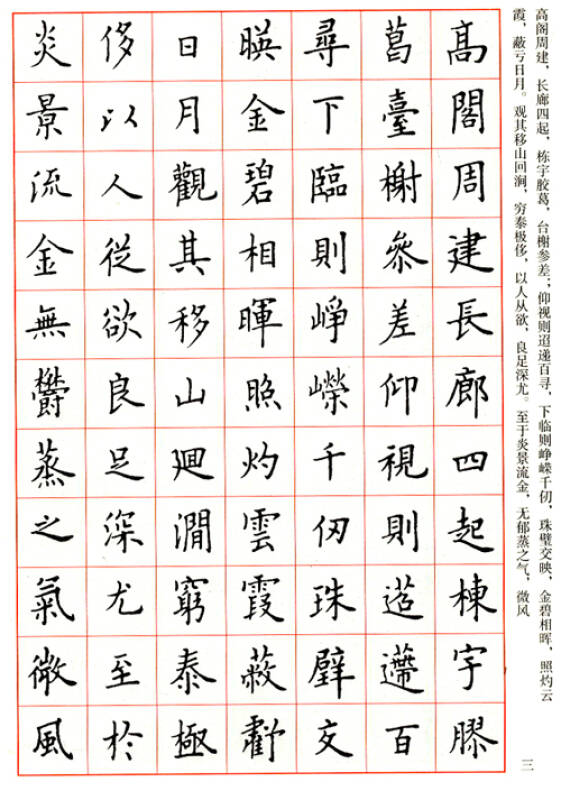 高阁周建，长廊四起，栋宇胶葛，台榭参差；仰视则迢递百寻，下临则峥嵘千仞，珠璧交映，金碧相晖，照灼云
霞，蔽亏日月。观其移山回涧，穷泰极侈，以人从欲，良足深尤。至于炎景流金，无郁蒸之气，微风
三
髙閣周建長廊四起棟宇膠
葛臺榭叅差仰視則迢遰百
尋下臨則崢嶸千仞珠璧交
暎金碧相暉照灼雲霞蔽虧
日月觀其移山廻澗窮泰極
侈以人從欲良足深尤至於
炎景流金無欝蒸之氣微風